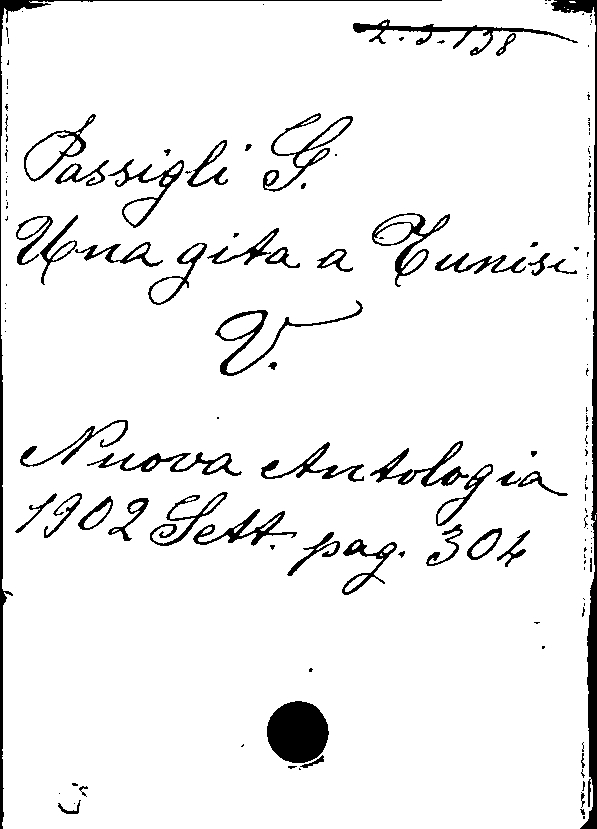 2.3.138
Passigli G.
Una gita a Tunisi
V.
Nuova Antologia
1902 Sett. pag. 304